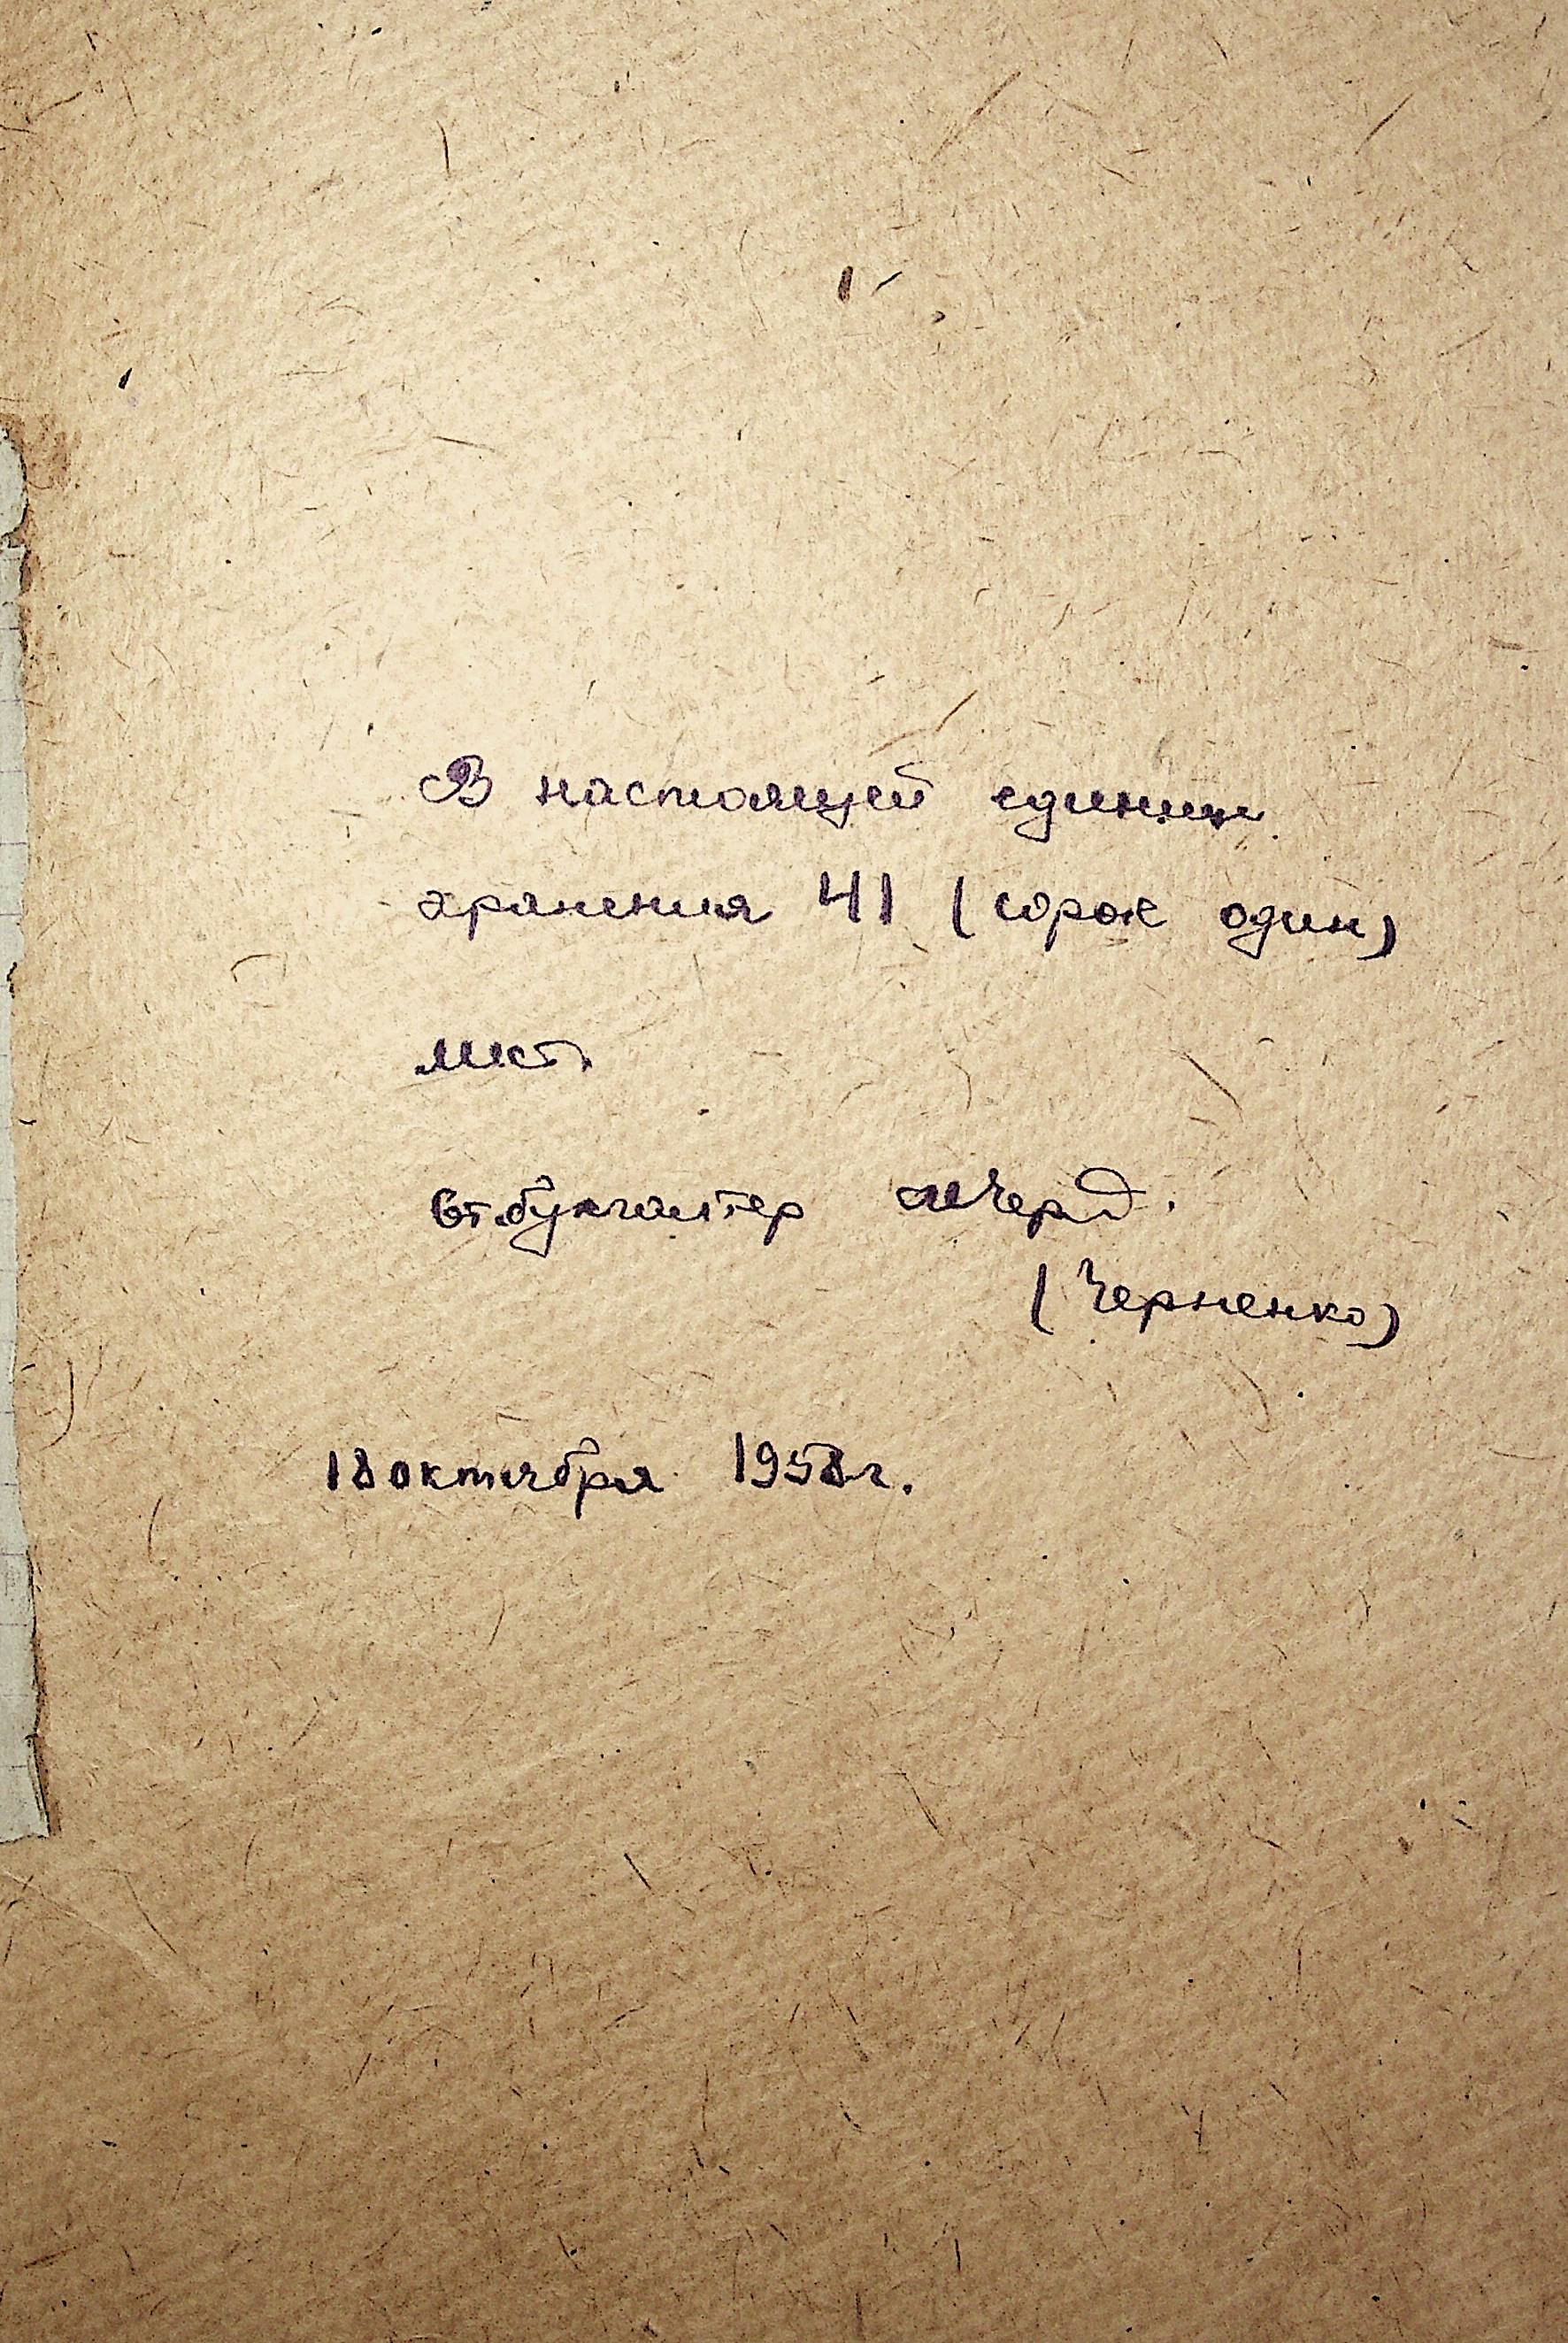 В настоящей единице
хранения 41 (сорок один)
лист.
Ст.бухгалтер
(Черненко)
18 октября 1958г.